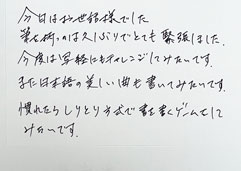 今日はお世話様でした
筆を持つのは久しぶりでとても緊張しました.
今度は写経にもチャレンジしてみたいです.
また日本語の美しい曲も書いてみたいです.
慣れたらしりとり方式で書を書くゲームもして
みたいです.